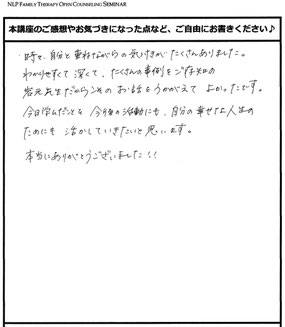 NLP FAMILY THERAPY OPEN COUNSELING SEMINAR
本講座のご感想やお気づきになった点など、ご自由にお書きください♪
・時々、自分と重ねながらの気づきがたくさんありました。
わかりやすくて深くて、たくさんの事例をご存知の
岩元先生だからこそのお話をうかがえてよかったです。
今日学んだことを今後の活動にも、自分の幸せな人生の
ためにも活かしていきたいと思います。
本当にありがとうございました!!